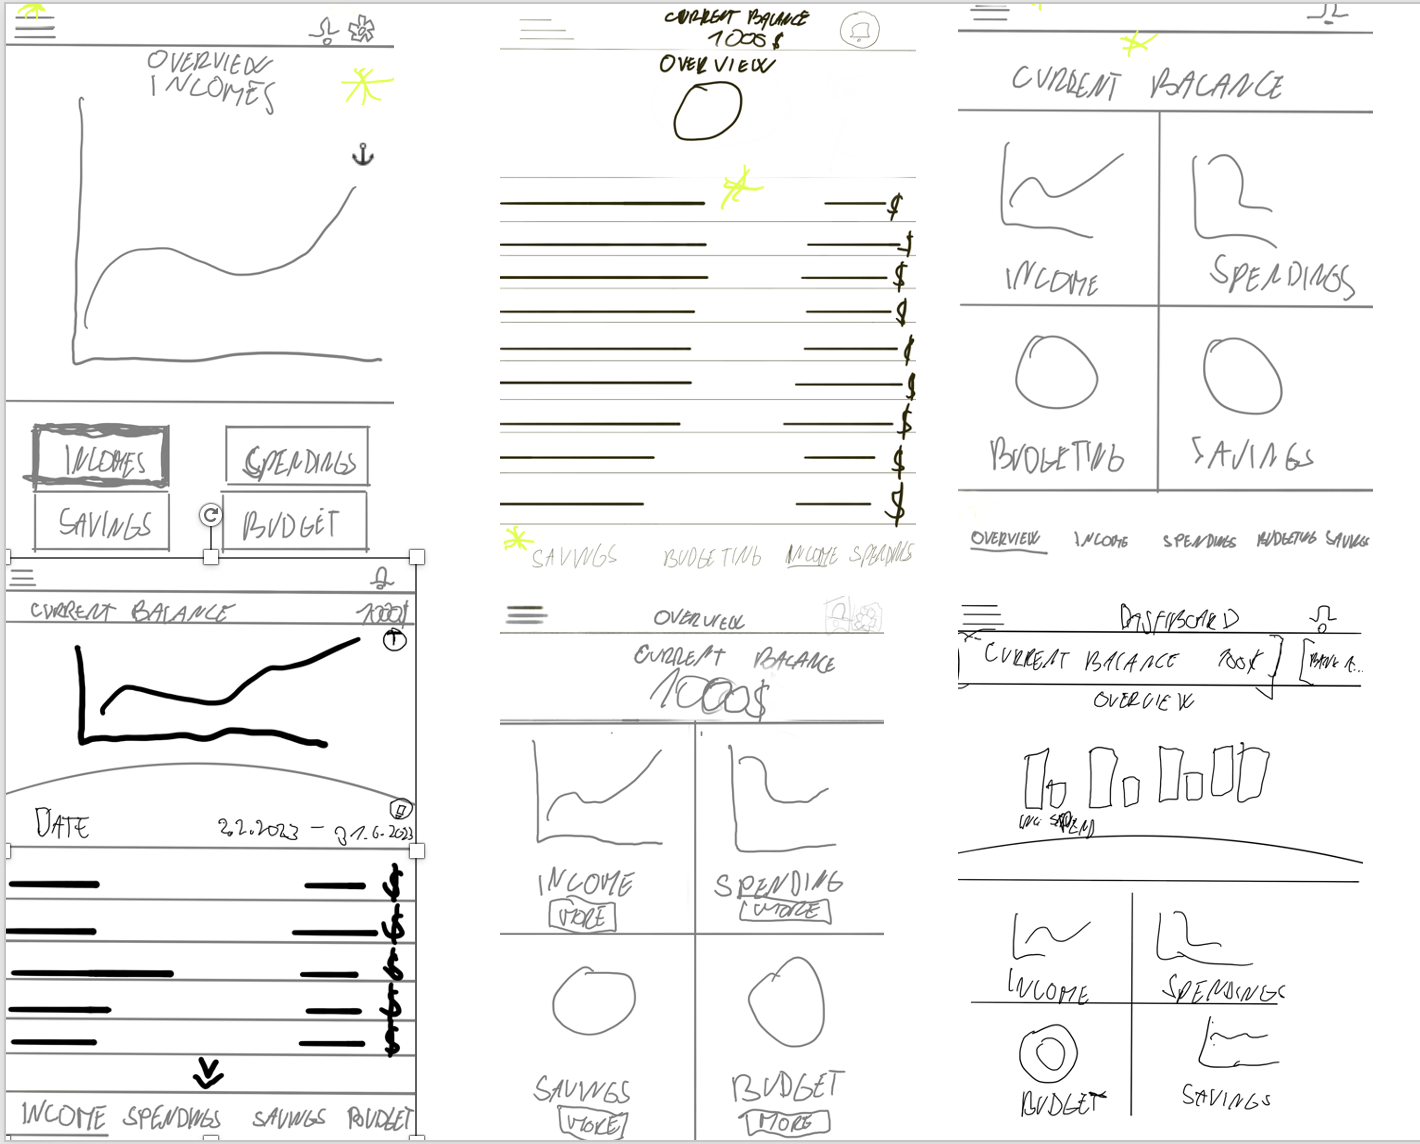 OVERVIEW
INCOMES
INCOMES
SPENDINGS
SAVINGS
BUDGET
CURRENT BALANCE 1000$
DATE 2.2.2023 - 31.6.2023
INCOME SPENDINGS SAVINGS BUDGET
CURRENT BALANCE
1000$
OVERVIEW
$
$
$
$
$
$
$
$
SAVINGS BUDGETING INCOME SPENDINGS
OVERVIEW
CURRENT BALANCE
1000$
INCOME
MORE
SPENDING
MORE
SAVINGS
MORE
BUDGET
MORE
CURRENT BALANCE
INCOME
SPENDINGS
BUDGETING
SAVINGS
OVERVIEW INCOME SPENDINGS BUDGETING SAVINGS
DASHBOARD
CURRENT BALANCE
OVERVIEW
INCOME
SPENDINGS
BUDGET
SAVINGS